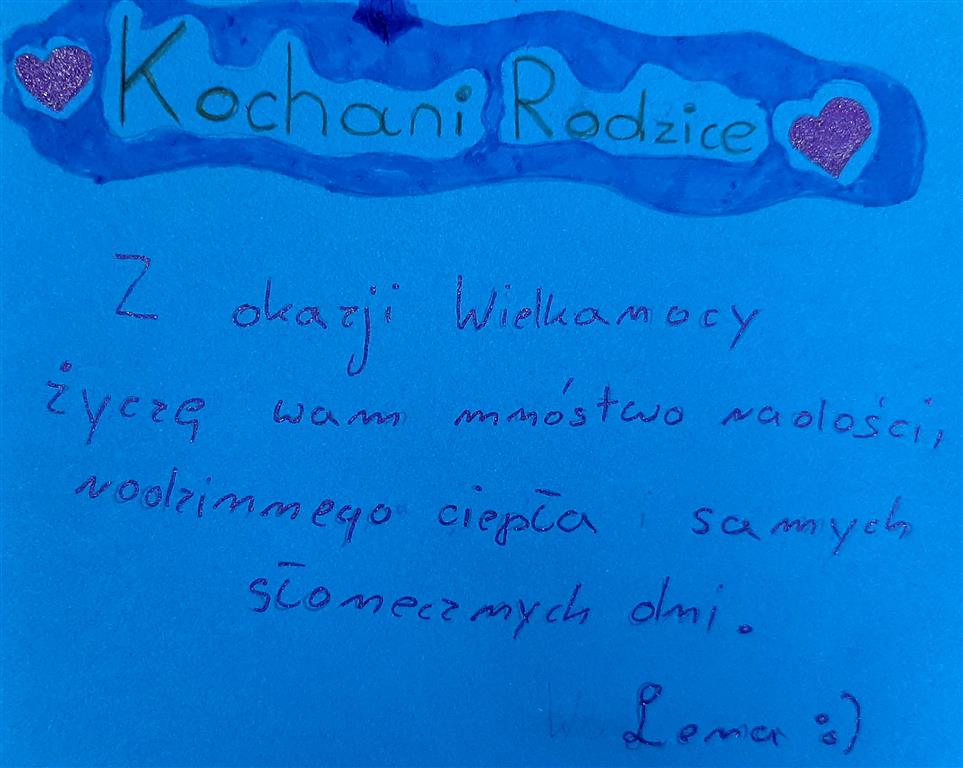 Kochani Rodzice
Z okazji Wielkanocy
życzę wam mnóstwo radości,
rodzinnego ciepła i samych
słonecznych dni.
Lena :)